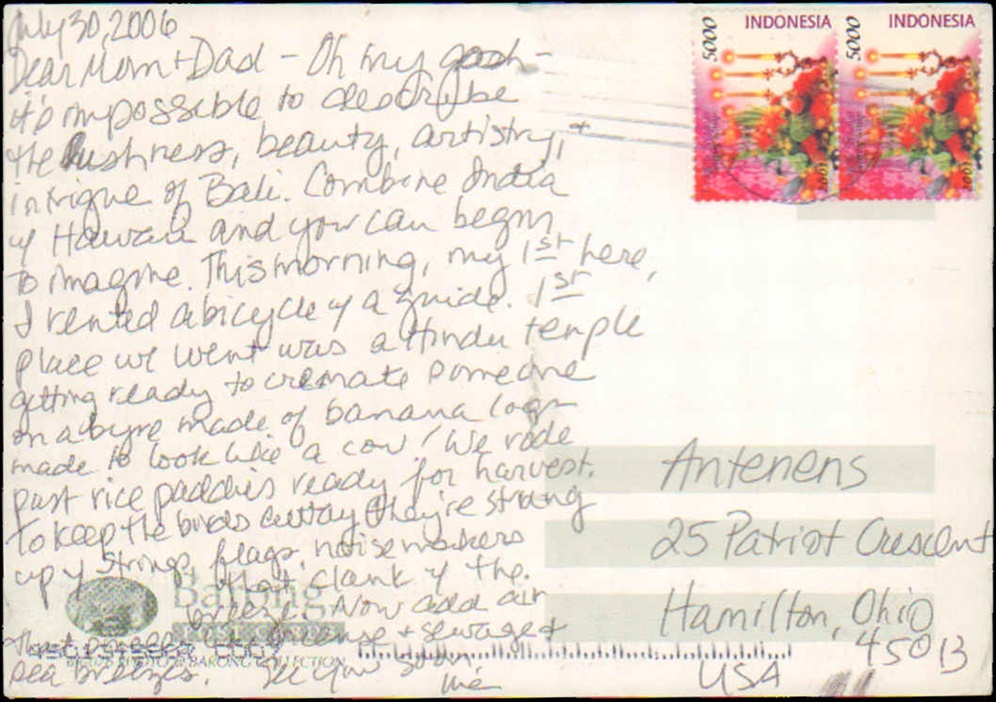 July 30, 2006
Dear Mom + Dad - Oh my gosh -
it's impossible to describe
the lushness, beauty, artistry, +
intrigue of Bali. Combine India
w/ Hawaii and you can begin
to imagine. This morning, my 1st here,
I rented a bicycle w/ a guide. 1st
place we went was a Hindu temple
getting ready to cremate someone
on a byre made of banana logs
made to look like a cow! We rode
past rice paddies ready for harvest.
To keep the birds away they're strung
up w/ strings, flags, noisemakers
that clank w/ the
breeze. Now add air
that smells of incense + sewage +
sea breezes. See you soon.
me
INDONESIA
5000
2001
INDONESIA
5000
2001
Antenens
25 Patriot Crescent
Hamilton, Ohio
45013
USA
Barong
BARONG COLLECTION